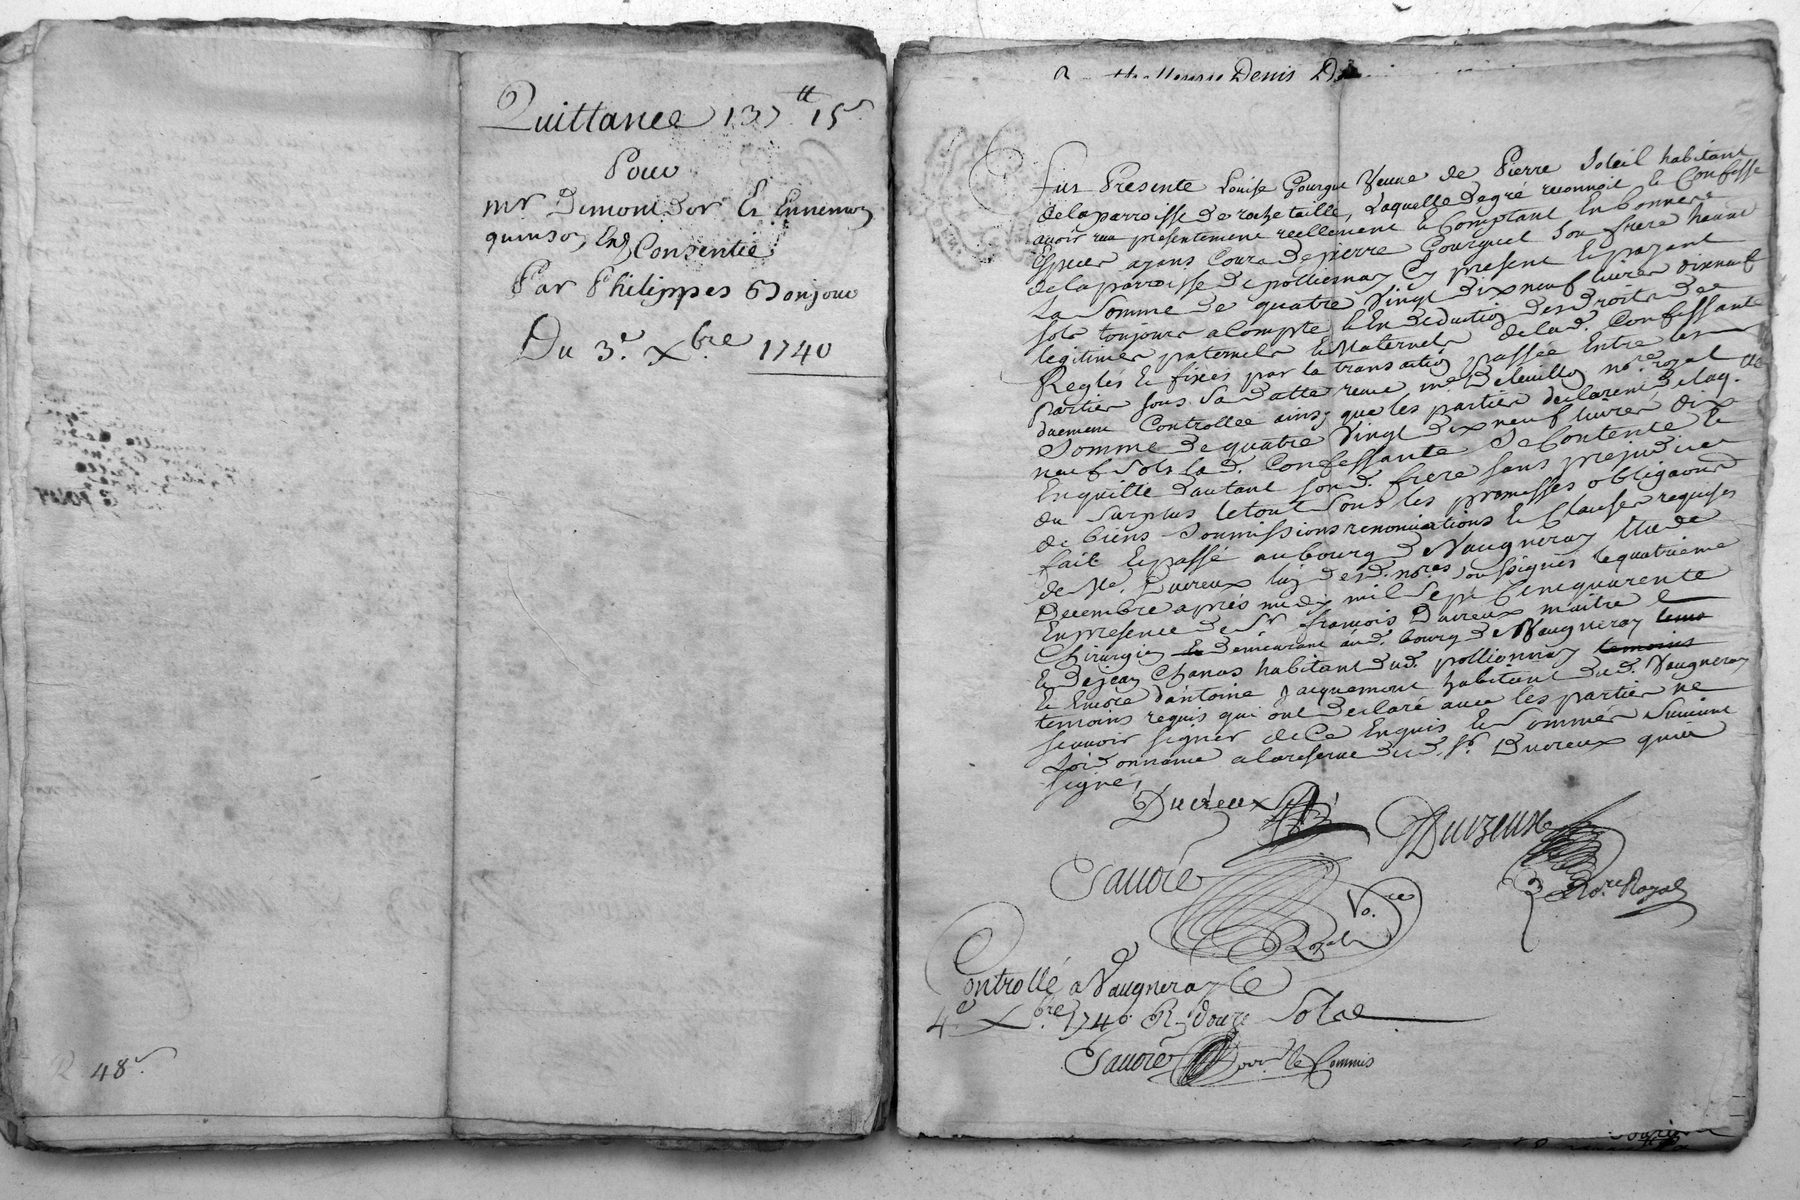 Quittance 137tt 15s
Pour
mr Dimont Dor Et Ennemon
quinson, Consentie
Par Philippes Bonjour
Du 3.e Xbre 1740
48s
Denis
Fut Presente Louise Gourgue Veuve de Pierre Soleil habitant
delaparroisse de rochetaillé, Laquelle degré reconnoit et Confesse
avoir reçu présentement réellement et Comptant En bonnere
Espece ayans Cours de pierre Gourguet Son frere havant
delaparroisse de pollienay Cy présent et payant
La Somme de quatre Vingt dix neuf livres dixneuf
sols toujours acompte et En deduction des droits de
legitimes paternels et Maternels de lad. Confessante
Reglés et fixés par la transaction passée Entre les
parties sous Sa datte reçue me Deleuillon nore royal
duement Controllée ainsy que les parties declarent de laq.
Somme de quatre Vingt dix neuf livres dix
neuf sols lad. Confessante Se Contente et
En quitte d'autant sond. frere sans prejudice
du surplus letout Sous les promesses obligaons
de biens Soumissions renonciations et Clauses requises
fait et passé au bourg de Vaugneray Etude
de Me. Ducreux lun desd. nores soussignés le quatrieme
Decembre aprés midy mil Sept Cent quarente
En presence de Sr francois Ducreux maitre
Chirurgien demeurant aud. bourg de Vaugneray
Et de jean Chanas habitant dud. pollionnay temoins
Et Encore d'antoine jacquemont habitant dud. Vaugneray
temoins requis qui ont declaré avec les parties ne
scavoir signer de Ce Enquis et Sommés Suivant
Lordonnance a lareserve dud. Sr. Ducreux qui a
signé,
Ducreux
Ducreux
Sauoié
No.re Royal
No.re
Royal
Controllé a Vaugneray le
4.e Xbre 1740 R. douze Sols
Sauoié pour le Commis